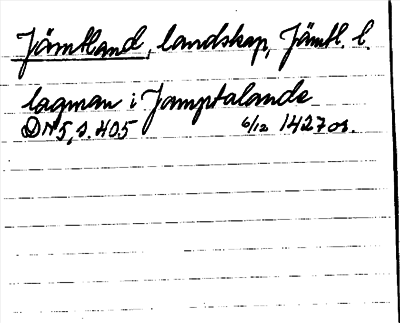 Jämtland, landskap, Jämtl. l.
lagman i Jamptalande
DN 5, s. 405 6/12 1427 or.